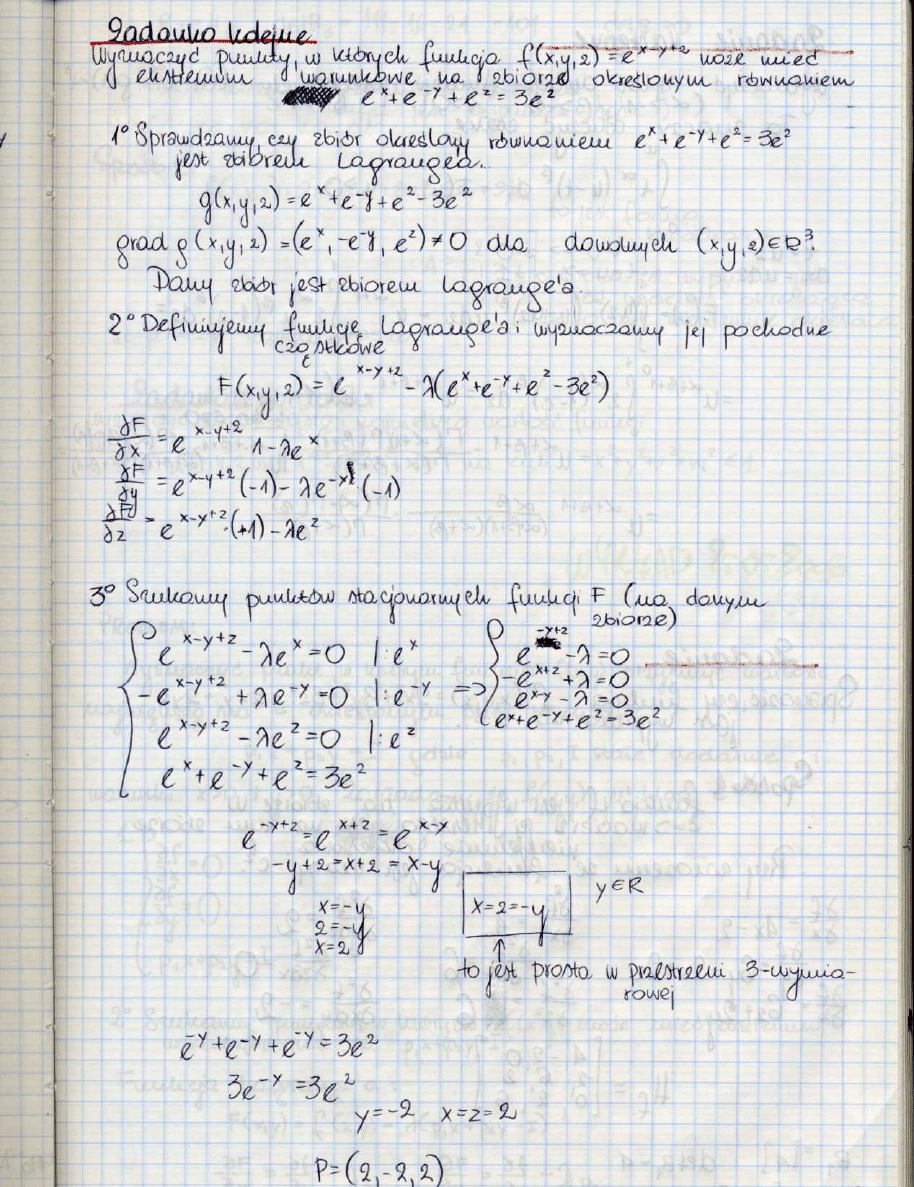 Zadanko kolejne
Wyznaczyć punkty, w których funkcja f(x,y,z) = e^{x-y+z} może mieć
ekstremum warunkowe na zbiorze określonym równaniem
e^x + e^{-y} + e^z = 3e^2
1° Sprawdzamy, czy zbiór określony równaniem e^x + e^{-y} + e^z = 3e^2
jest zbiorem Lagrange'a.
g(x,y,z) = e^x + e^{-y} + e^z - 3e^2
grad g(x,y,z) = (e^x, -e^{-y}, e^z) ≠ 0 dla dowolnych (x,y,z) ∈ R^3.
Dany zbiór jest zbiorem Lagrange'a.
2° Definiujemy funkcję Lagrange'a i wyznaczamy jej pochodne
cząstkowe
F(x,y,z) = e^{x-y+z} - λ(e^x + e^{-y} + e^z - 3e^2)
∂F/∂x = e^{x-y+z} · 1 - λe^x
∂F/∂y = e^{x-y+z} (-1) - λe^{-y} · (-1)
∂F/∂z = e^{x-y+z} · (+1) - λe^z
3° Szukamy punktów stacjonarnych funkcji F (na danym
zbiorze)
e^{x-y+z} - λe^x = 0 |: e^x e^{-y+z} - λ = 0
-e^{x-y+z} + λe^{-y} = 0 |: e^{-y} => -e^{x+z} + λ = 0
e^{x-y+z} - λe^z = 0 |: e^z e^{x-y} - λ = 0
e^x + e^{-y} + e^z = 3e^2 e^x + e^{-y} + e^z = 3e^2
e^{-y+z} = e^{x+z} = e^{x-y}
-y+z = x+z = x-y
x = -y
z = -y
x = z
x = z = -y y ∈ R
to jest prosta w przestrzeni 3-wymia-
rowej
e^{-y} + e^{-y} + e^{-y} = 3e^2
3e^{-y} = 3e^2
y = -2 x = z = 2
P = (2, -2, 2)